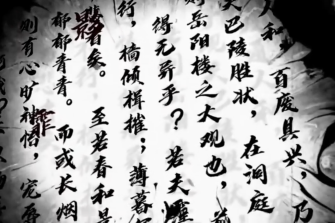 和，百废具兴，乃
夫巴陵胜状，在洞庭
则岳阳楼之大观也，前
得无异乎？若夫
行，樯倾楫摧；薄暮
者矣。至若春和景
郁郁青青。而或长烟
则有心旷神怡，宠